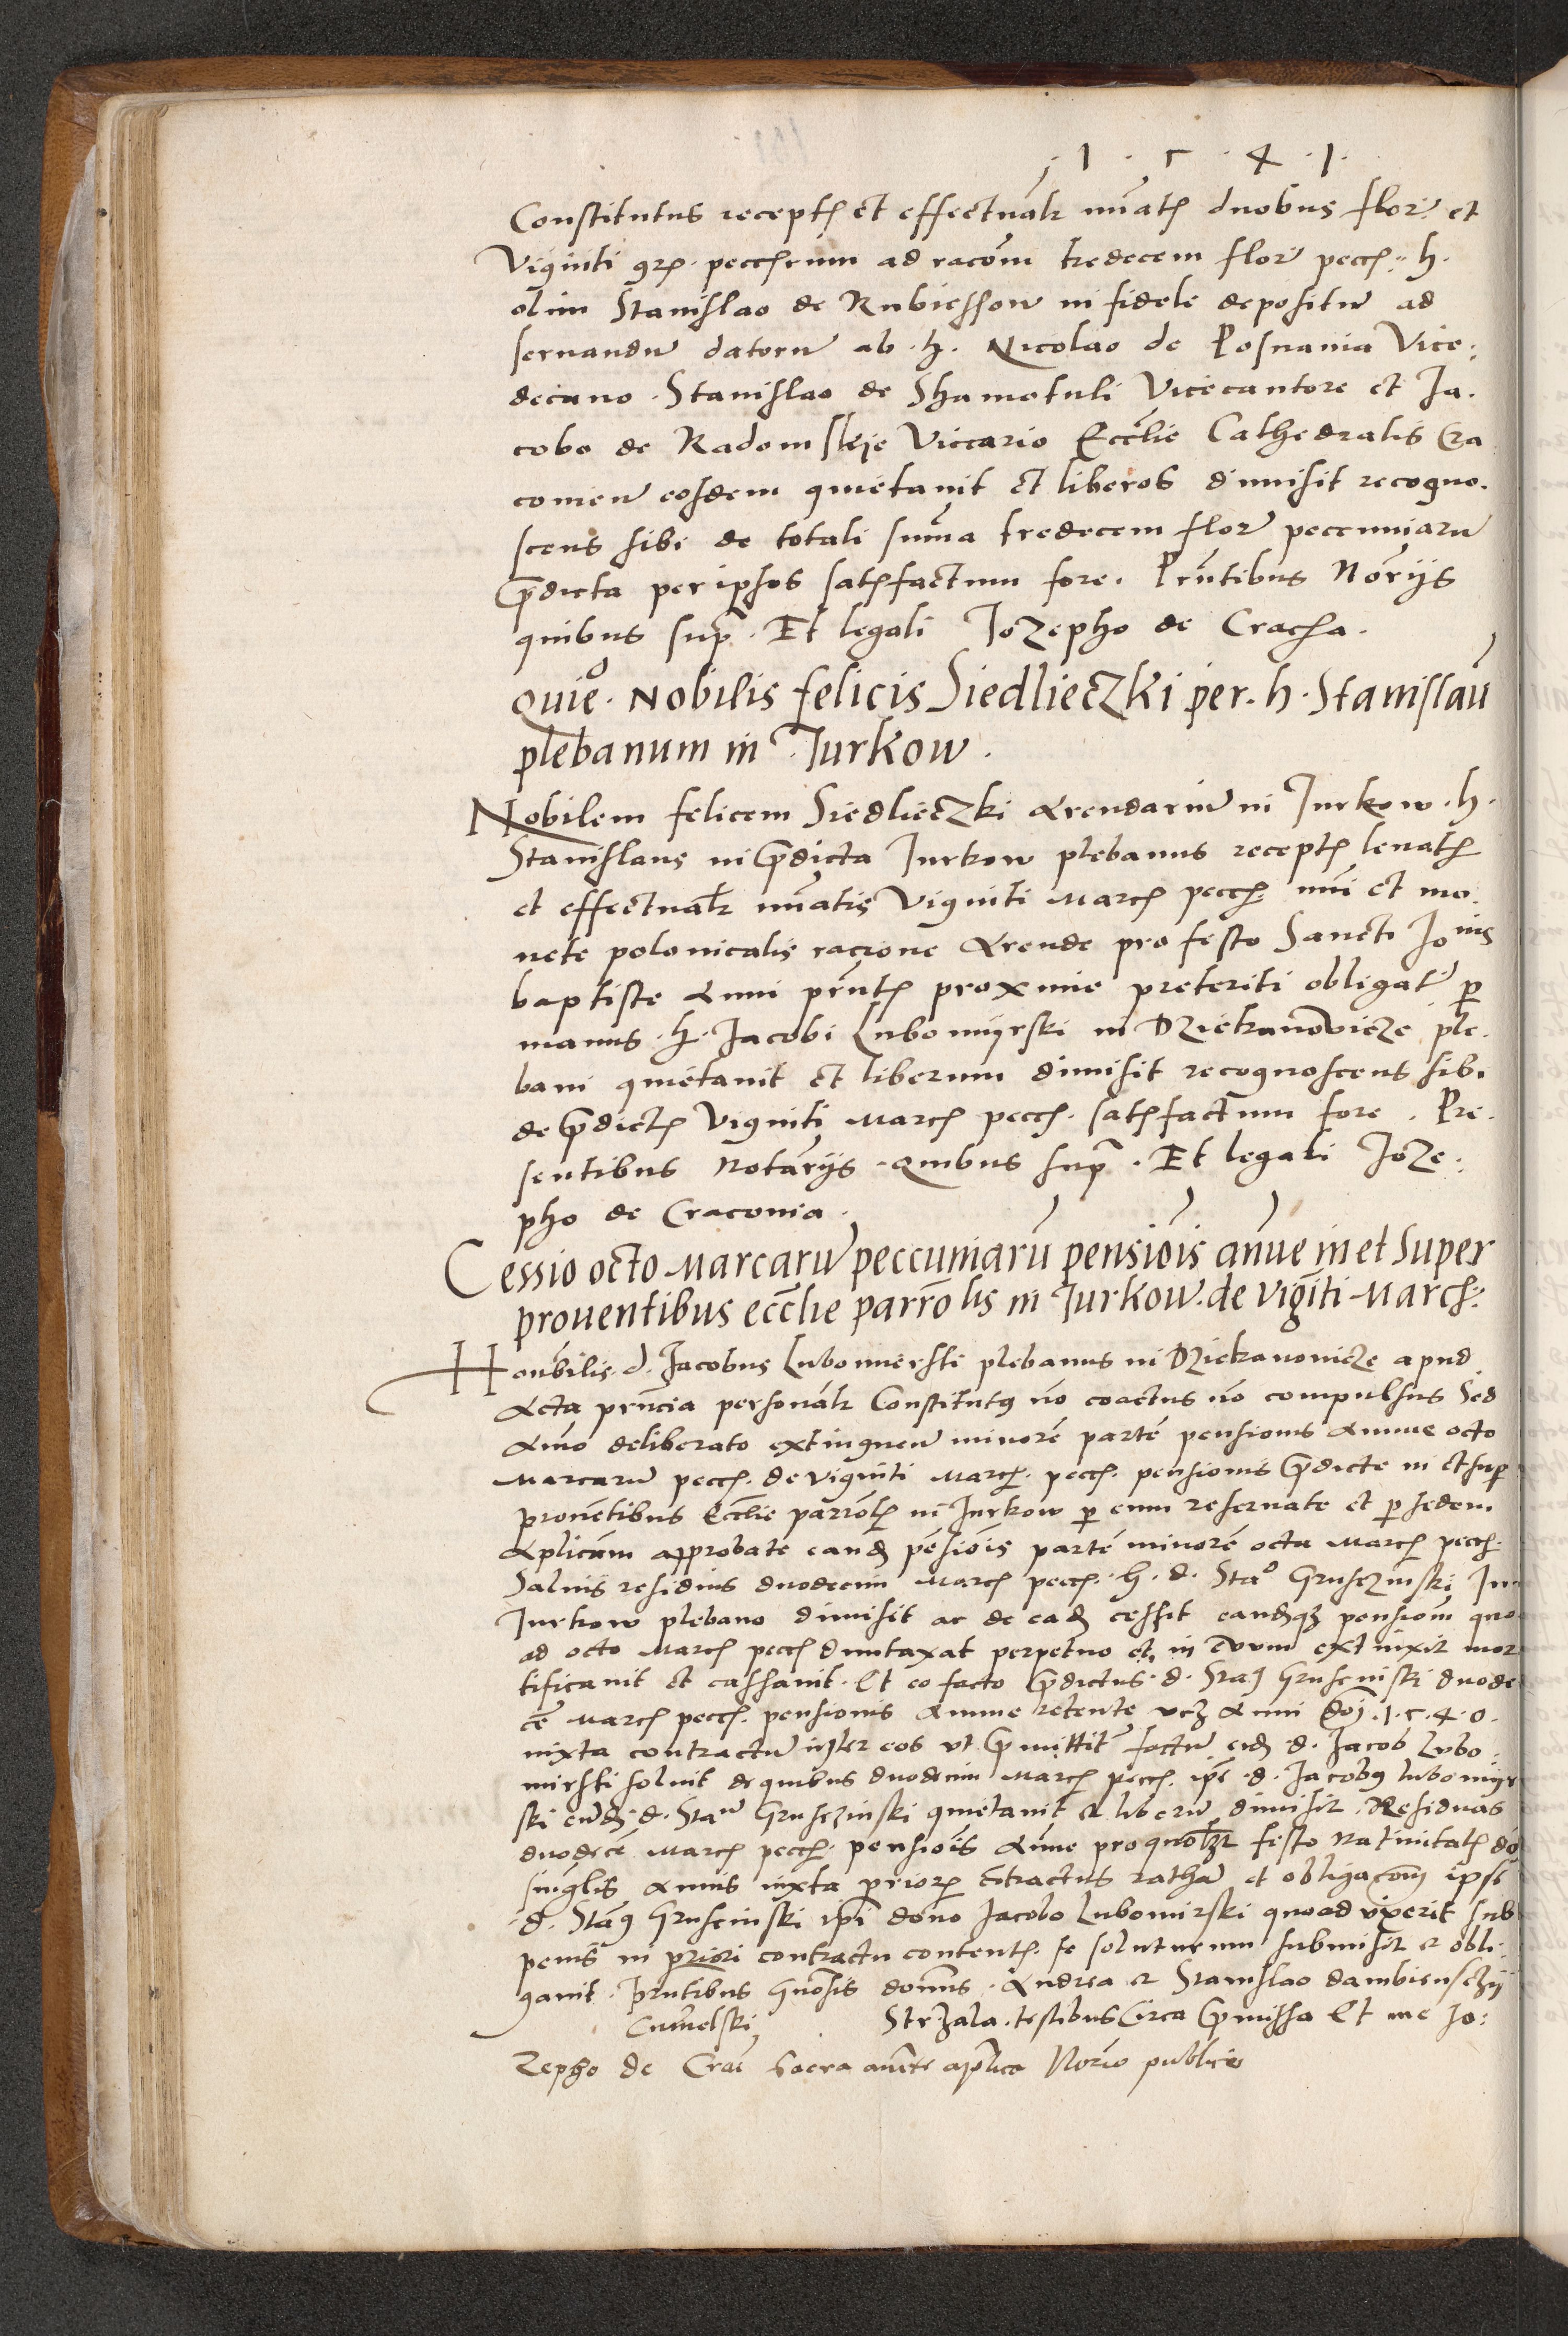 . 1 . 5 . 4 . 1 .
Constitutus recept et effectualr nuat duobus flor et
Viginti gr. pecc̃rum ad racõm tredecem flor pecc. h.
olim Stanislao de Rubiessow in fidele depositũ ad
seruandũ datorũ ab . h . Nicolao de Posnania Vice:
decano . Stanislao de Shamotuli Vicecantore et Ja.
cobo de Radomskie Viccario Eccĺie Cathedralis Cra
couien̄ eosdem quietauit et liberos dimisit recogno.
scens sibi de totali sum̃a tredecem flor peccuniarũ
p̃dicta per iphos satisfactum fore . Pr̃ntibus Nor̃ijs
quibus sup̃ . Et legali Jozepho de Crac̃a .
Quie͂ᵒ . Nobilis felicis Siedlieczki per . h . Stanislaũ
plebanum in Jurkow .
Nobilem felicem Siedlieczki Arendariũ in Jurkow . h .
Stanislaus in p̃dicta Jurkow plebanus recept leuat
et effectualr nũatis Viginti March pecc̃ nũi et mo.
nete polonicalis racione Arende pro festo Sancti Joⁿⁱˢ
baptiste Anni pr̃nt proxime preteriti obligat̃ p
manus . h . Jacobi Lubomijrski in Dziekanowicze ple.
bani quietauit et liberum dimisit recognoscens sibi
de p̃dict Viginti March pecc̃ . satisfactum fore . Pre.
sentibus Notarijs . quibus sup̃ . Et legali Joze:
pho de Craconia .
Cessio octo Marcarũ peccuniarũ pensiõis anñue in et super
prouentibus eccĺie parrõlis in Jurkow . de viginti March:
Honũbilis . d . Jacobus Lubomierski plebanus in Dziekanowicze apud
Acta prñcia personalr Constitutus nõ coactus nõ compulsus Sed
Aĩo deliberato extinguen̄ minorẽ partẽ pensionis Annue octo
Marcarũ pecc̃ . de viginti March . pecc̃ . pensionis p̃dicte in et sup
prouẽtibus Eccĺie parrõl in Jurkow p eum reseruate et p sedem
Aplicam approbate eand pẽsiõis partẽ minorẽ octo March pecc̃ .
Saluis residuis duodecim March pecc̃ . h . d . Staᵒ Grusczinski In
Jurkow plebano dimisit ac de ead cessit eandqz pensionẽ quo
ad octo March pecc̃ duntaxat perpetuo et in euum extinxit mor
tificauit et cassauit . Et eo facto p̃dictus . d . Sta Gruscinski duode
cẽ March pecc̃ . pensionis Annue retente vcz Anni Doi . 1 . 5 . 4 . 0 .
iuxta contractũ inter eos vt p̃mittit̃ factũ eid . d . Jacob Lubo.
mirski soluit de quibus duodecim March pecc̃ . ip̃e . d . Jacobus lubomijr
ski eũd . d . Staũ Grusczinski quietauit et liberũ dimisit . Residuas
duodecẽ March pecc̃ . pensiõis Anñue pro quolzt festo Natiuitat do
singlis Annis iuxta prior cõtractus ratham et obligacõm ipse
d . Stañs Gruscinski ip̃i dono Jacobo Lubomirski quoad vixerit sub
penis in priori contractu content . se soluturum submisit et obli.
gauit . Pr̃ntibus Gnosis domñs . Andrea et Stanislao dambienschij
Strzala . testibus Circa p̃missa Et me Jo:
zepho de Craẽ Sacra aucte aplica Norio publico